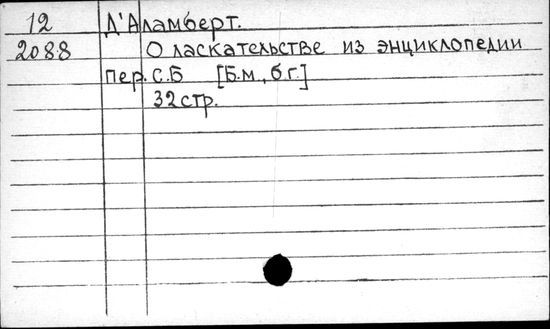 12 Д'Аламберт.
2088 О ласкательстве из энциклопедии
пер. С.Б [Б.м., б.г.]
32 стр.